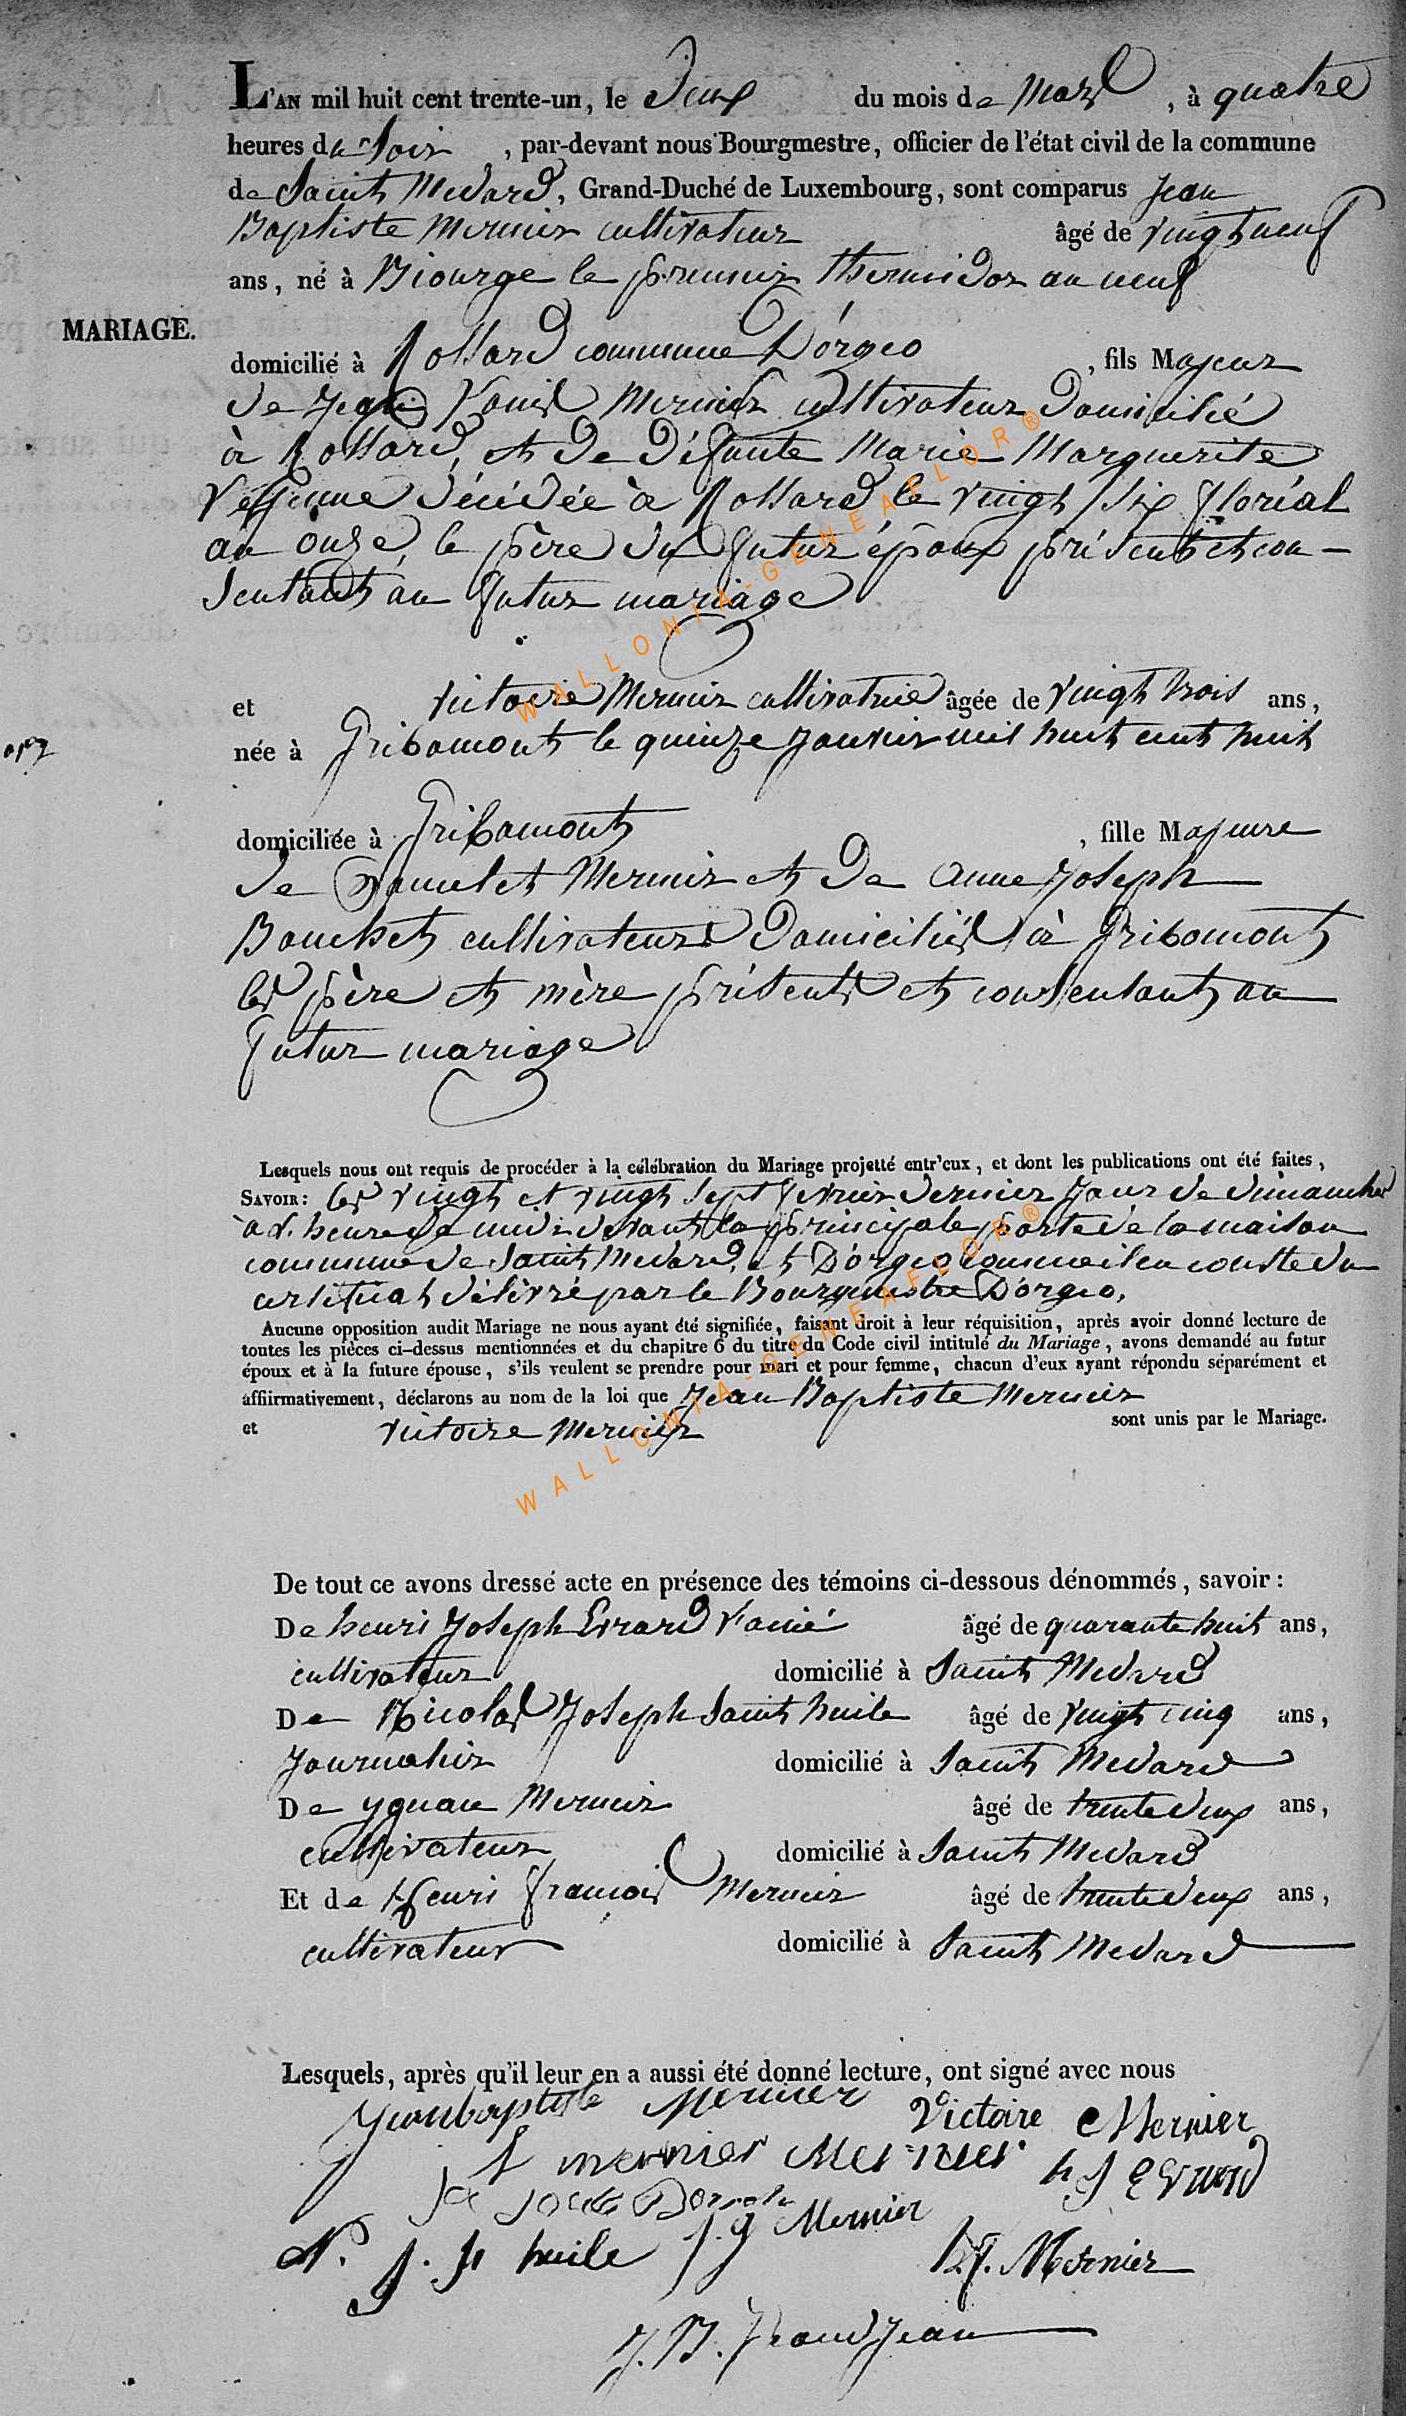 L'AN mil huit cent trente-un, le deux du mois de Mars, à quatre
heures du soir, par-devant nous Bourgmestre, officier de l'état civil de la commune
de Saint Medard, Grand-Duché de Luxembourg, sont comparus Jean
Baptiste Mernier cultivateur âgé de vingt neuf
ans, né à Biourge le premier thermidor an neuf
MARIAGE.
domicilié à Rossard commune D'orgeo, fils Majeur
de Jean Louis Mernier cultivateur domicilié
à Rossard, et de défunte Marie Marguerite
décédée à Rossard le vingt six floréal
an onze, le père du futur époux présent et con-
sentant au futur mariage
et Victoire Mernier cultivatrice âgée de vingt trois ans,
née à Gribomont le quinze Janvier mil huit cent huit
domiciliée à Gribomont, fille Majeure
de Mernier et de Anne Joseph
Bauchet cultivateurs domiciliés à Gribomont
les père et mère présents et consentant au
futur mariage
Lesquels nous ont requis de procéder à la célébration du Mariage projetté entr'eux, et dont les publications ont été faites,
SAVOIR: les vingt et vingt sept fevrier dernier Jour de dimanche
à l'heure de midi devant la principale porte de la maison
commune de Saint Medard, et D'orgeo comme il en conste du
certificat délivré par le Bourgmestre D'orgeo,
Aucune opposition audit Mariage ne nous ayant été signifiée, faisant droit à leur réquisition, après avoir donné lecture de
toutes les pièces ci-dessus mentionnées et du chapitre 6 du titre du Code civil intitulé du Mariage, avons demandé au futur
époux et à la future épouse, s'ils veulent se prendre pour mari et pour femme, chacun d'eux ayant répondu séparément et
affiirmativement, déclarons au nom de la loi que Jean Baptiste Mernier
et Victoire Mernier sont unis par le Mariage.
De tout ce avons dressé acte en présence des témoins ci-dessous dénommés, savoir:
De henri Joseph Evrard l'ainé âgé de quarante huit ans,
cultivateur domicilié à Saint Medard
De Nicolas Joseph Saint huile âgé de vingt cinq ans,
Journalier domicilié à Saint Medard
De Ygnace Mernier âgé de trente deux ans,
cultivateur domicilié à Saint Medard
Et de Henri françois Mernier âgé de trente deux ans,
cultivateur domicilié à Saint Medard
Lesquels, après qu'il leur en a aussi été donné lecture, ont signé avec nous
Jeanbaptiste Mernier Victoire Mernier
mernier Mernier h J Evrard
N. J. St huile J. g Mernier
h f. Mernier
J. B. Grandjean
WALLONIA-GENEAFLOR®
WALLONIA-GENEAFLOR®